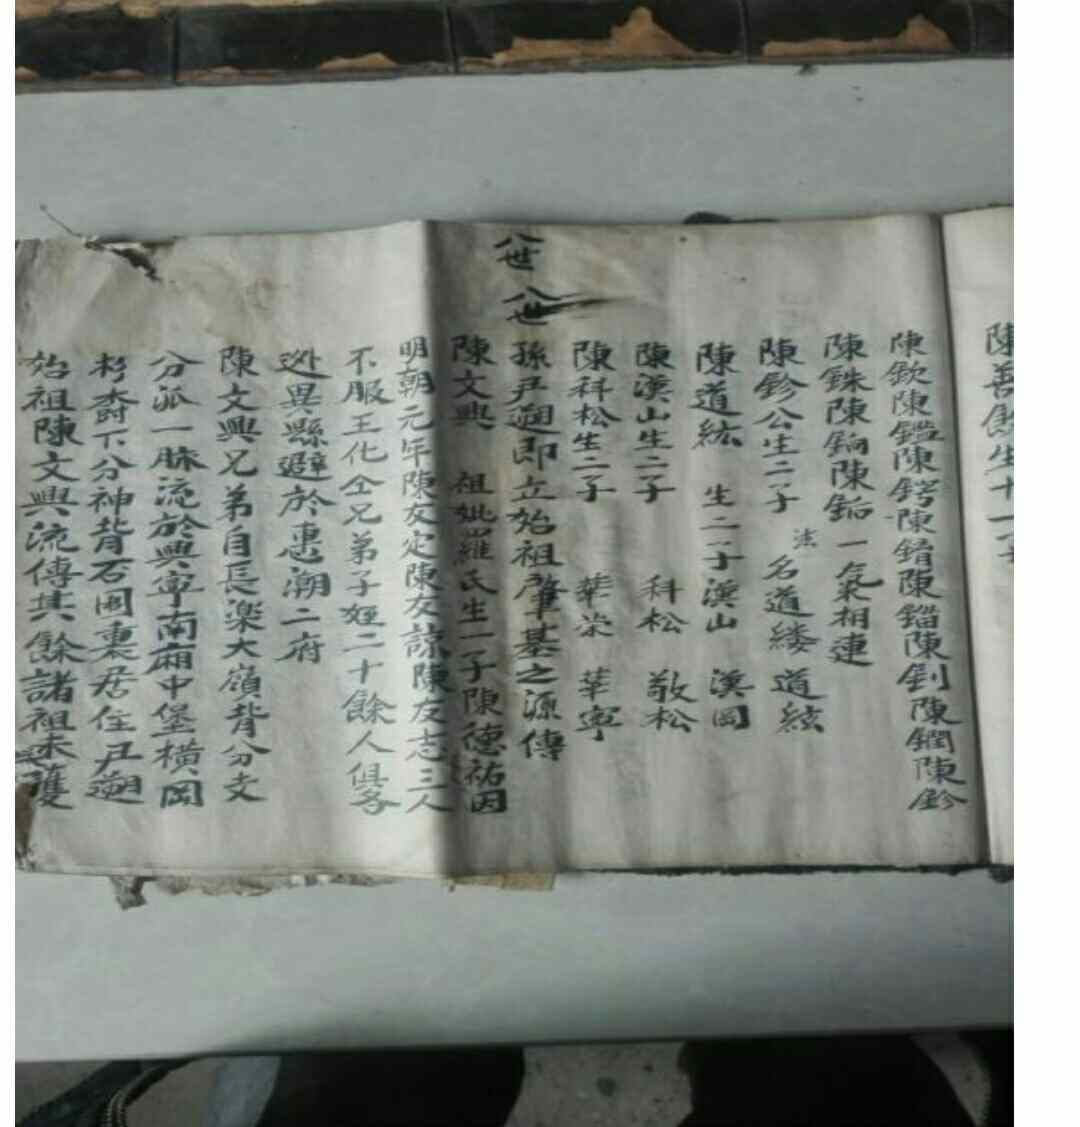 陳善
生十一子
陳欽陳鑑陳鍔陳錥陳錙陳釗陳鐧陳鉁
陳銖陳鋿陳銆一氣相連
陳鉁公生二子 法名道縷 道絃
陳道紘 生二子漢山 漢岡
陳漢山生二子 科松 敬松
陳科松生二子 華荣 華寧
八世 八世
孫尹遡即立始祖肇基之源傳
陳文興 祖妣羅氏生一子陳德祐因
明朝元年陳友定陳友諒陳友志三人
不服王化仝兄弟子姪二十餘人俱各
迯異縣避於惠潮二府
陳文興兄弟自長楽大嶺背分支
分派一脉流於興寧南廂中堡橫岡
杉樹下分神背石圍裏居住尹遡
始祖陳文興流傳其餘諸祖未獲